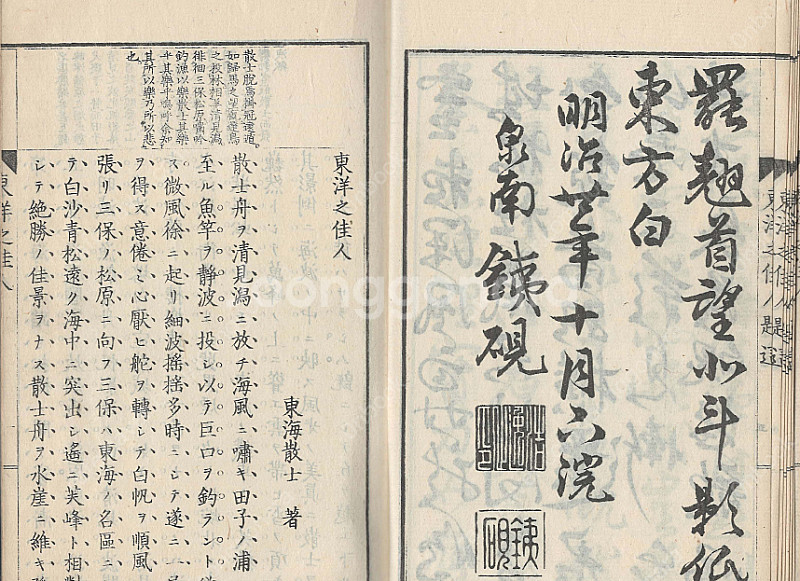 東洋之佳人
罷翹首望北斗影低
東方白
明治廿年十月下浣
泉南 鐵硯
鐵硯
散士脱
如歸馬之望
之投林相 清見潟
徘徊三保松原嘯吟
釣漁以樂散士其樂
乎其樂乎嗚呼余知
其所以樂乃所以悲
也
東洋之佳人
東海散士 著
散士舟ヲ清見潟ニ放チ海風ニ嘯キ田子ノ浦
至ル魚竿ヲ靜波ニ投シ以テ巨口ヲ釣ラント
ス微風徐ニ起リ細波搖搖多時ニシテ遂ニ一
ヲ得ス意倦ミ心厭ヒ舵ヲ轉シテ白帆ヲ順風
張リ三保ノ松原ニ向フ三保ハ東海ノ名區ニ
テ白沙青松遠ク海中ニ突出シ遙ニ芙峰ト相
シテ絶勝ノ佳景ヲナス散士舟ヲ水崖ニ維キ
東洋之佳人